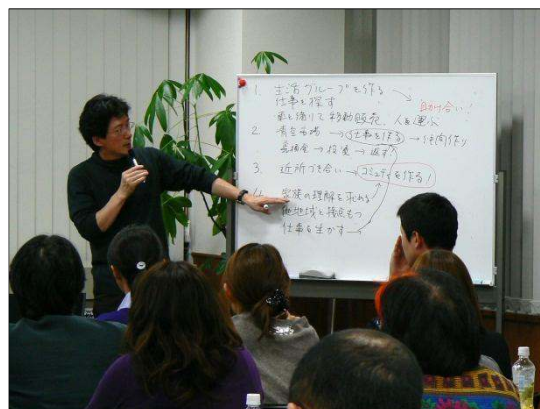 1. 生活グループを作る
自助け合い!
仕事を探す
車を借りて移動販売、人を運ぶ
2. 青空市場 → 仕事を作る → 仲間作り
義援金 → 投資 → 返す
3. 近所づき合い → コミュニティを作る!
4. 家族の理解を求める
他地域と接点もつ
仕事を生かす